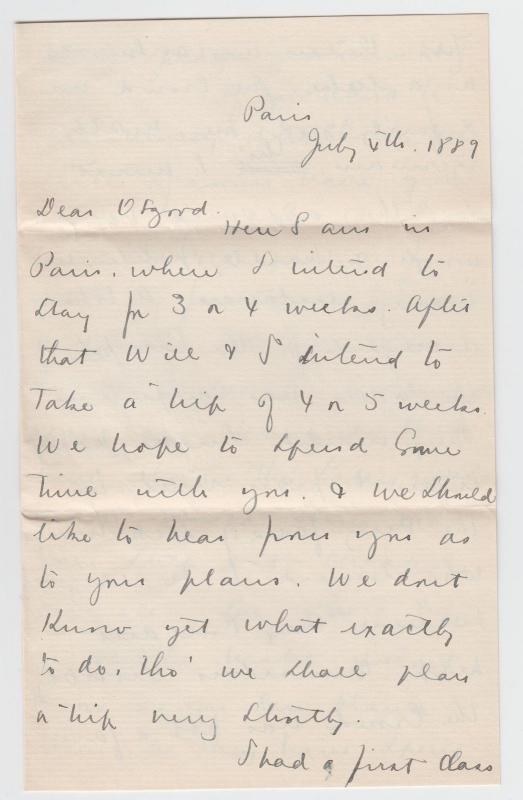 Paris
July 4th. 1889
Dear Osgood.
Here I am in
Paris. where I intend to
stay for 3 or 4 weeks. After
that Will & I intend to
take a trip of 4 or 5 weeks.
We hope to spend some
time with you. & we should
like to hear from you as
to your plans. We don't
know yet what exactly
to do, tho' we shall plan
a trip very shortly.
I had a first class